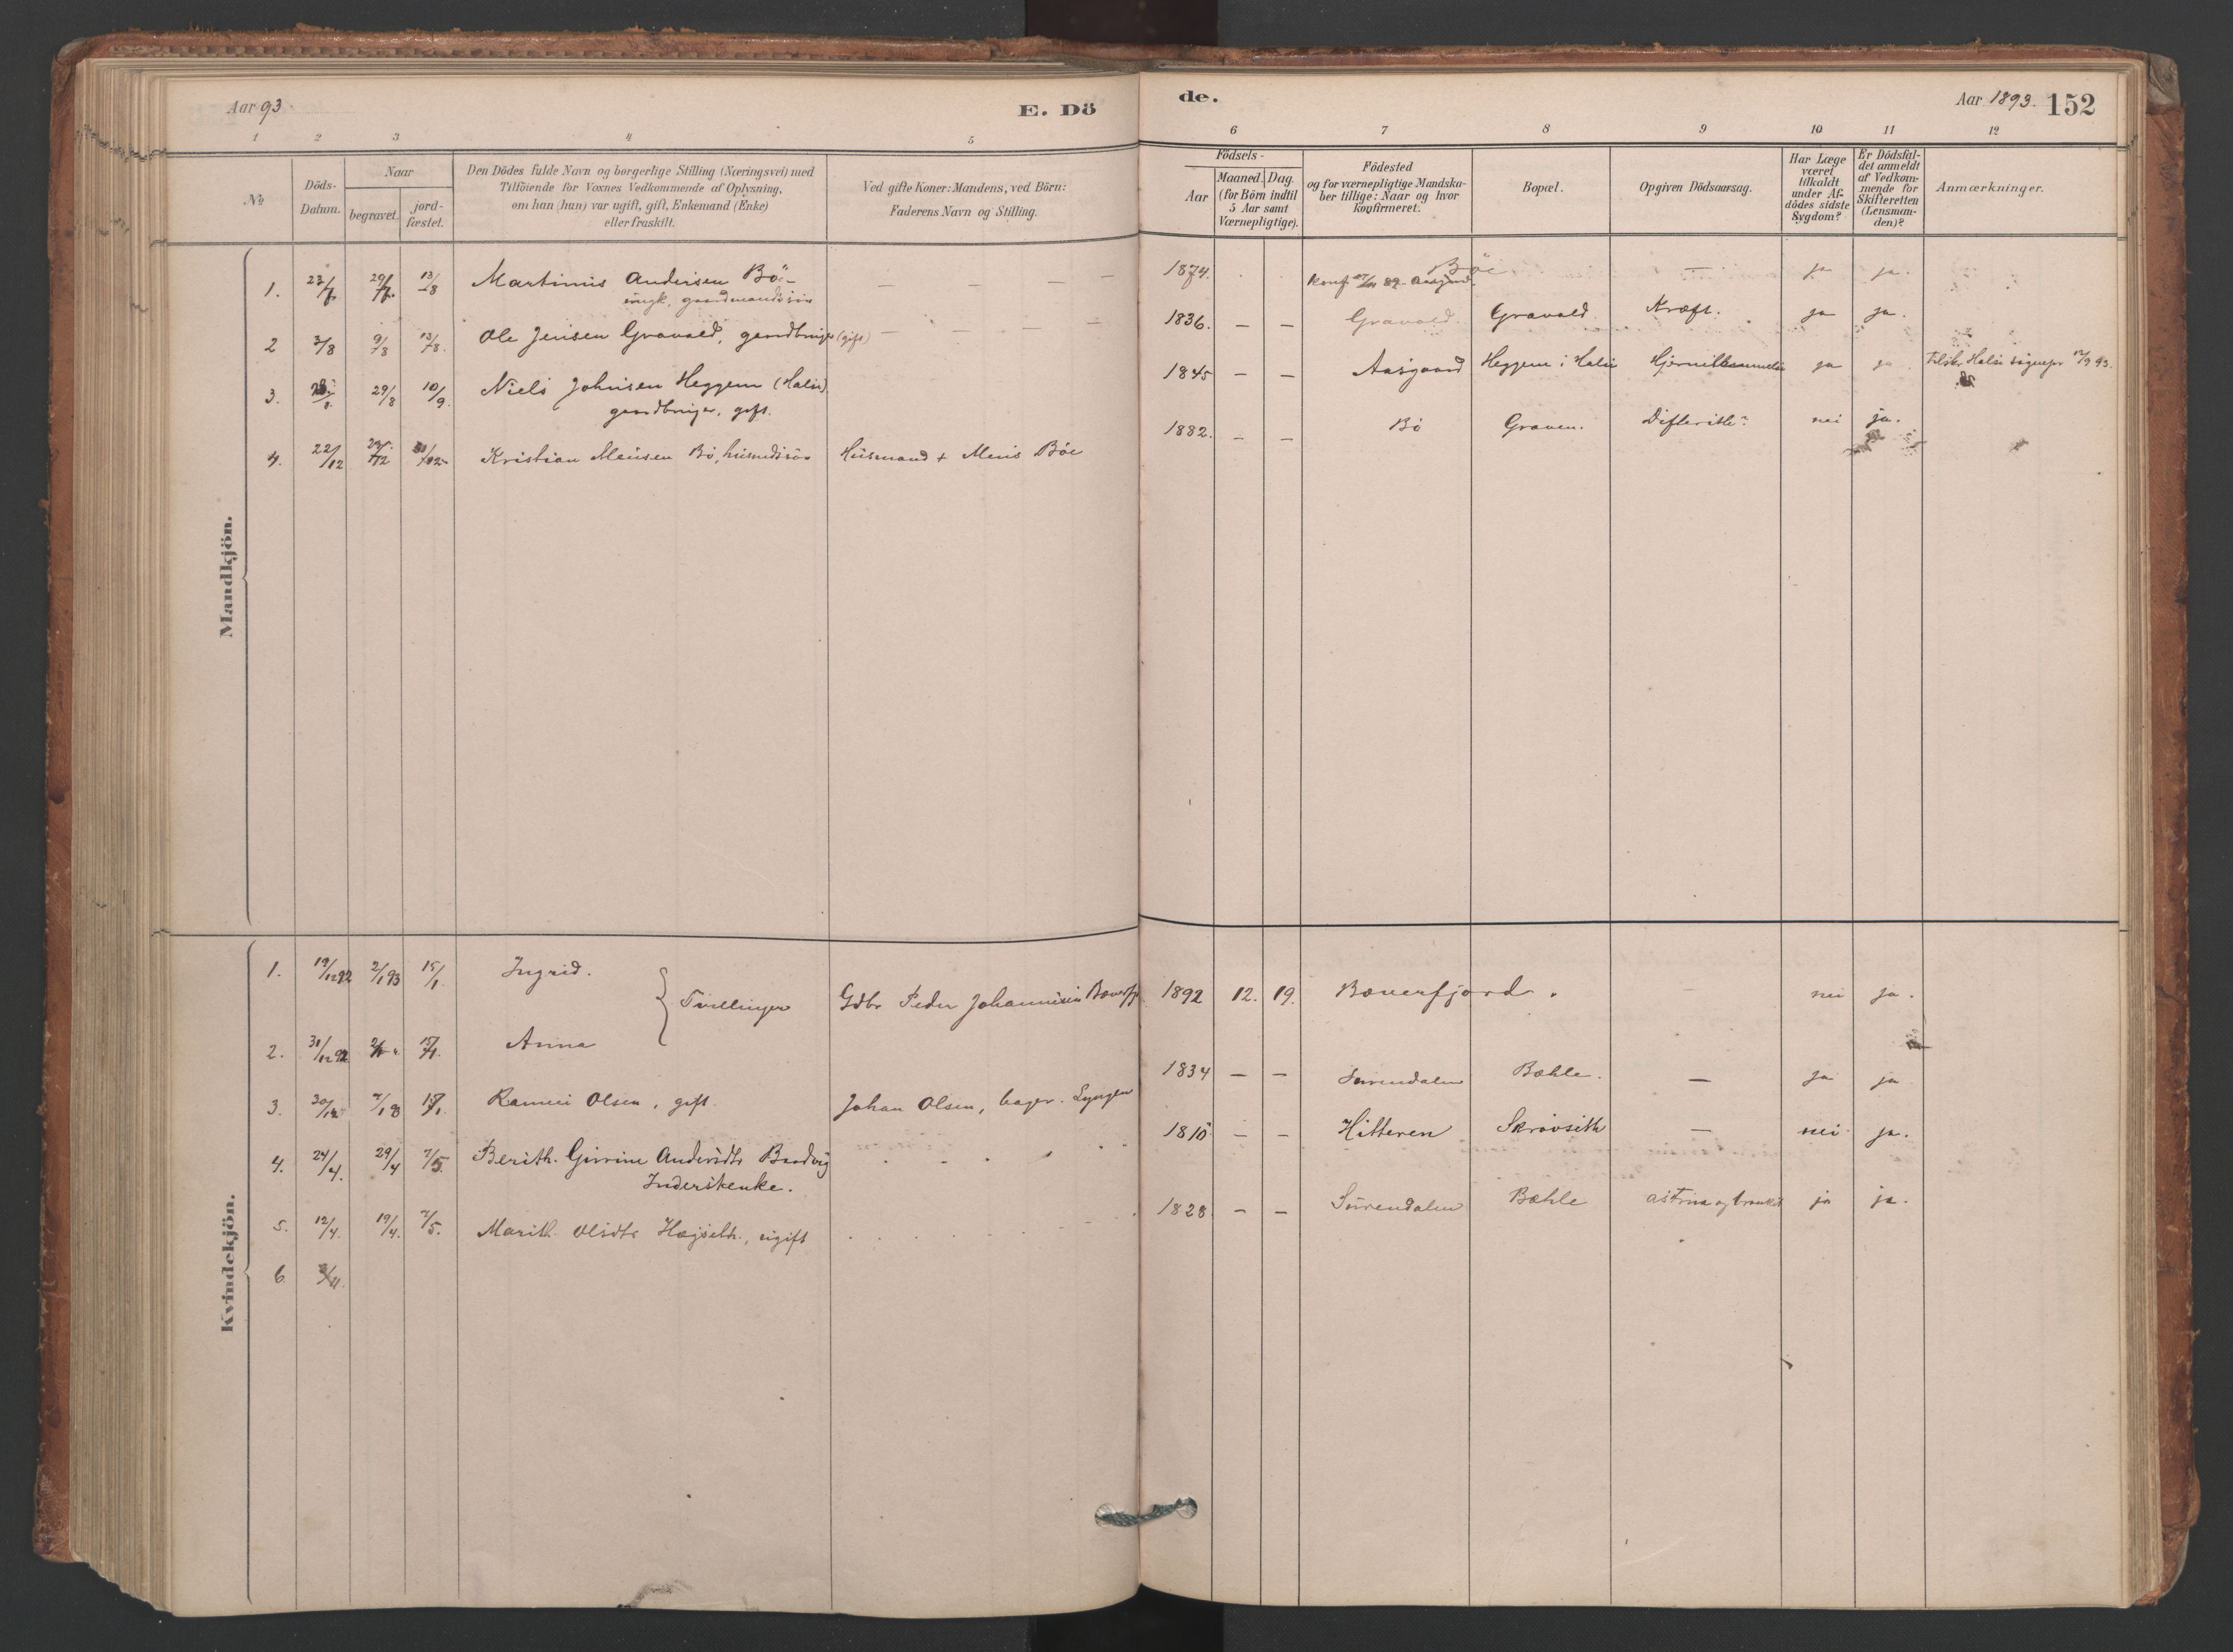 Aar 93
E. Dö
de.
Aar 1893. 152
1 2 3 4 5 6 7 8 9 10 11 12
№
Döds-
Datum.
Naar
begravet.
jord-
fæstet.
Den Dödes fulde Navn og borgerlige Stilling (Næringsvei) med
Tilföiende for Voxnes Vedkommende af Oplysning,
om han (hun) var ugift, gift, Enkemand (Enke)
eller fraskilt.
Ved gifte Koner: Mandens, ved Börn:
Faderens Navn og Stilling.
Födsels-
Aar
Maaned. Dag.
(for Börn indtil
5 Aar samt
Værnepligtige).
Födested
og for værnepligtige Mandska-
ber tillige: Naar og hvor
konfirmeret.
Bopæl.
Opgiven Dödsaarsag.
Har Læge
været
tilkaldt
under Af-
dödes sidste
Sygdom?
Er Dödsfal-
det anmeldt
af Vedkom-
mende for
Skifteretten
(Lensman-
den)?
Anmærkninger.
Mandkjön.
1. 23/7 29/7. 13/8 Martinus Andersen Bö - — — — 1874. Böe — ja ja.
ungk, gaardmandssön Konf 89
2 3/8 9/8 13/8. Ole Jensen Gravald, gaardbruger (gift) — — — — 1836. — — Gravald. Gravald Kræft. ja ja.
3. 29/8 10/9. Niels Johnsen Heggem (Halse) 1845 — — Aasgaard Heggem i Halse ja ja. Halse 93.
gaardbruger, gift.
4. 22/12 Kristian Bö, husmdssön Husmand + Böe 1882. — — Bö Difterit nei ja.
Kvindekjön.
1. 19/12 92 2/1 93 15/1 Ingrid. Tvillinger Gdbr Peder Johannesen 1892 12. 19. Bæverfjord. nei ja.
2. 31/12 92 15/1. Anna
3. 30/12 15/1. Olsen, gift. Johan Olsen, 1834 — — Surendalen Bæhle. — ja ja
4. 24/4. 29/4 7/5. Berith. Andersdtr 1810 — — Hitteren — nei ja.
Inderstenke.
5. 12/4. 19/4. 7/5. Marith Olsdtr ugift 1828. — — Surendalen Bæhle ja ja.
6. /11.